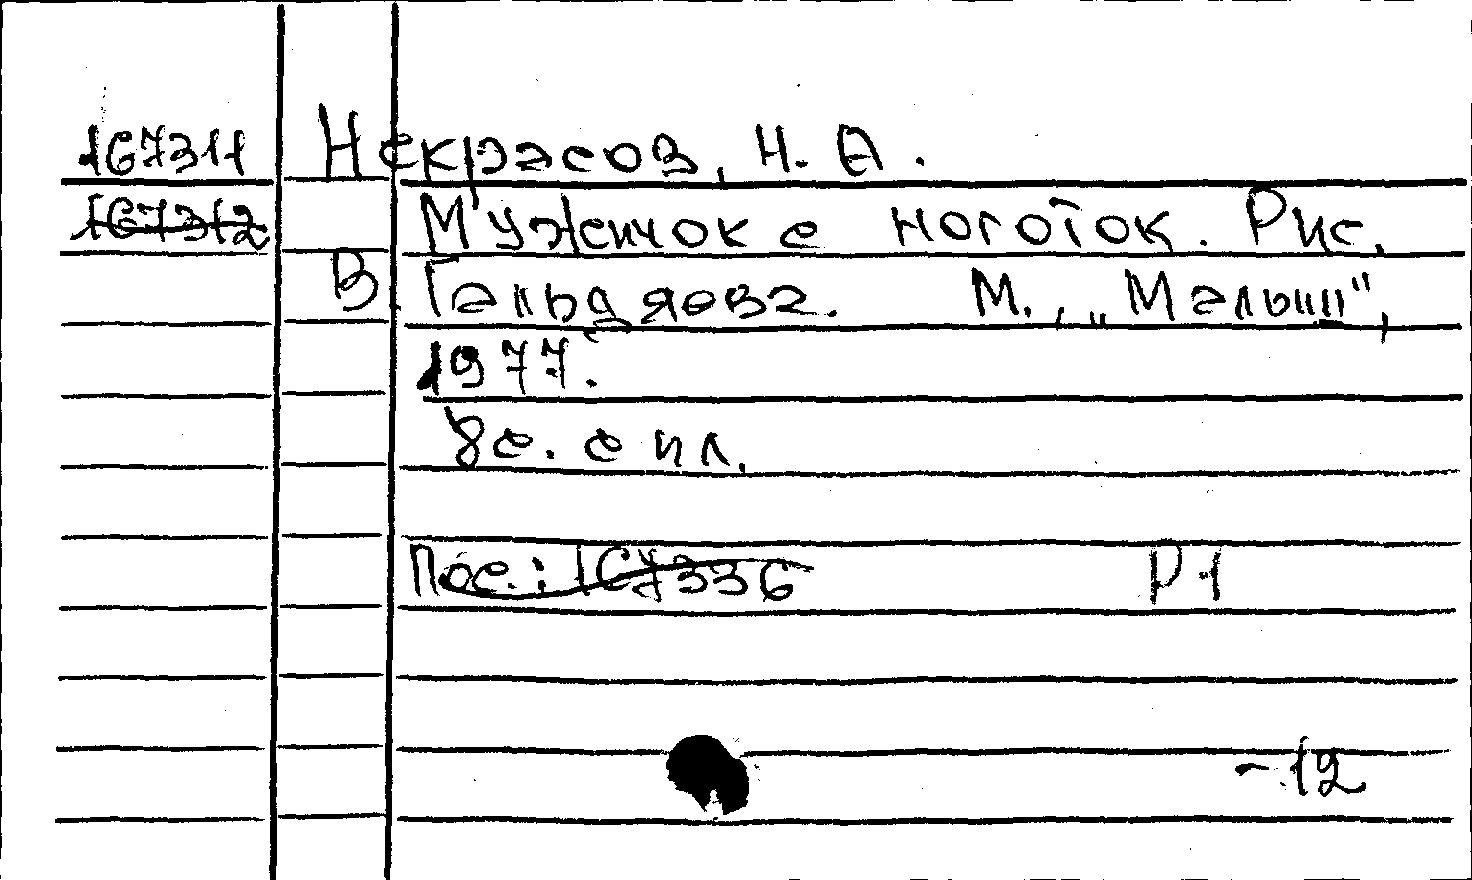 167311 Некрасов, Н. А.
167312 Мужичок с ноготок. Рис.
В. Гальдяева. М., „Малыш",
1977.
8с. с ил.
Пос.: 167336 Р1
-12